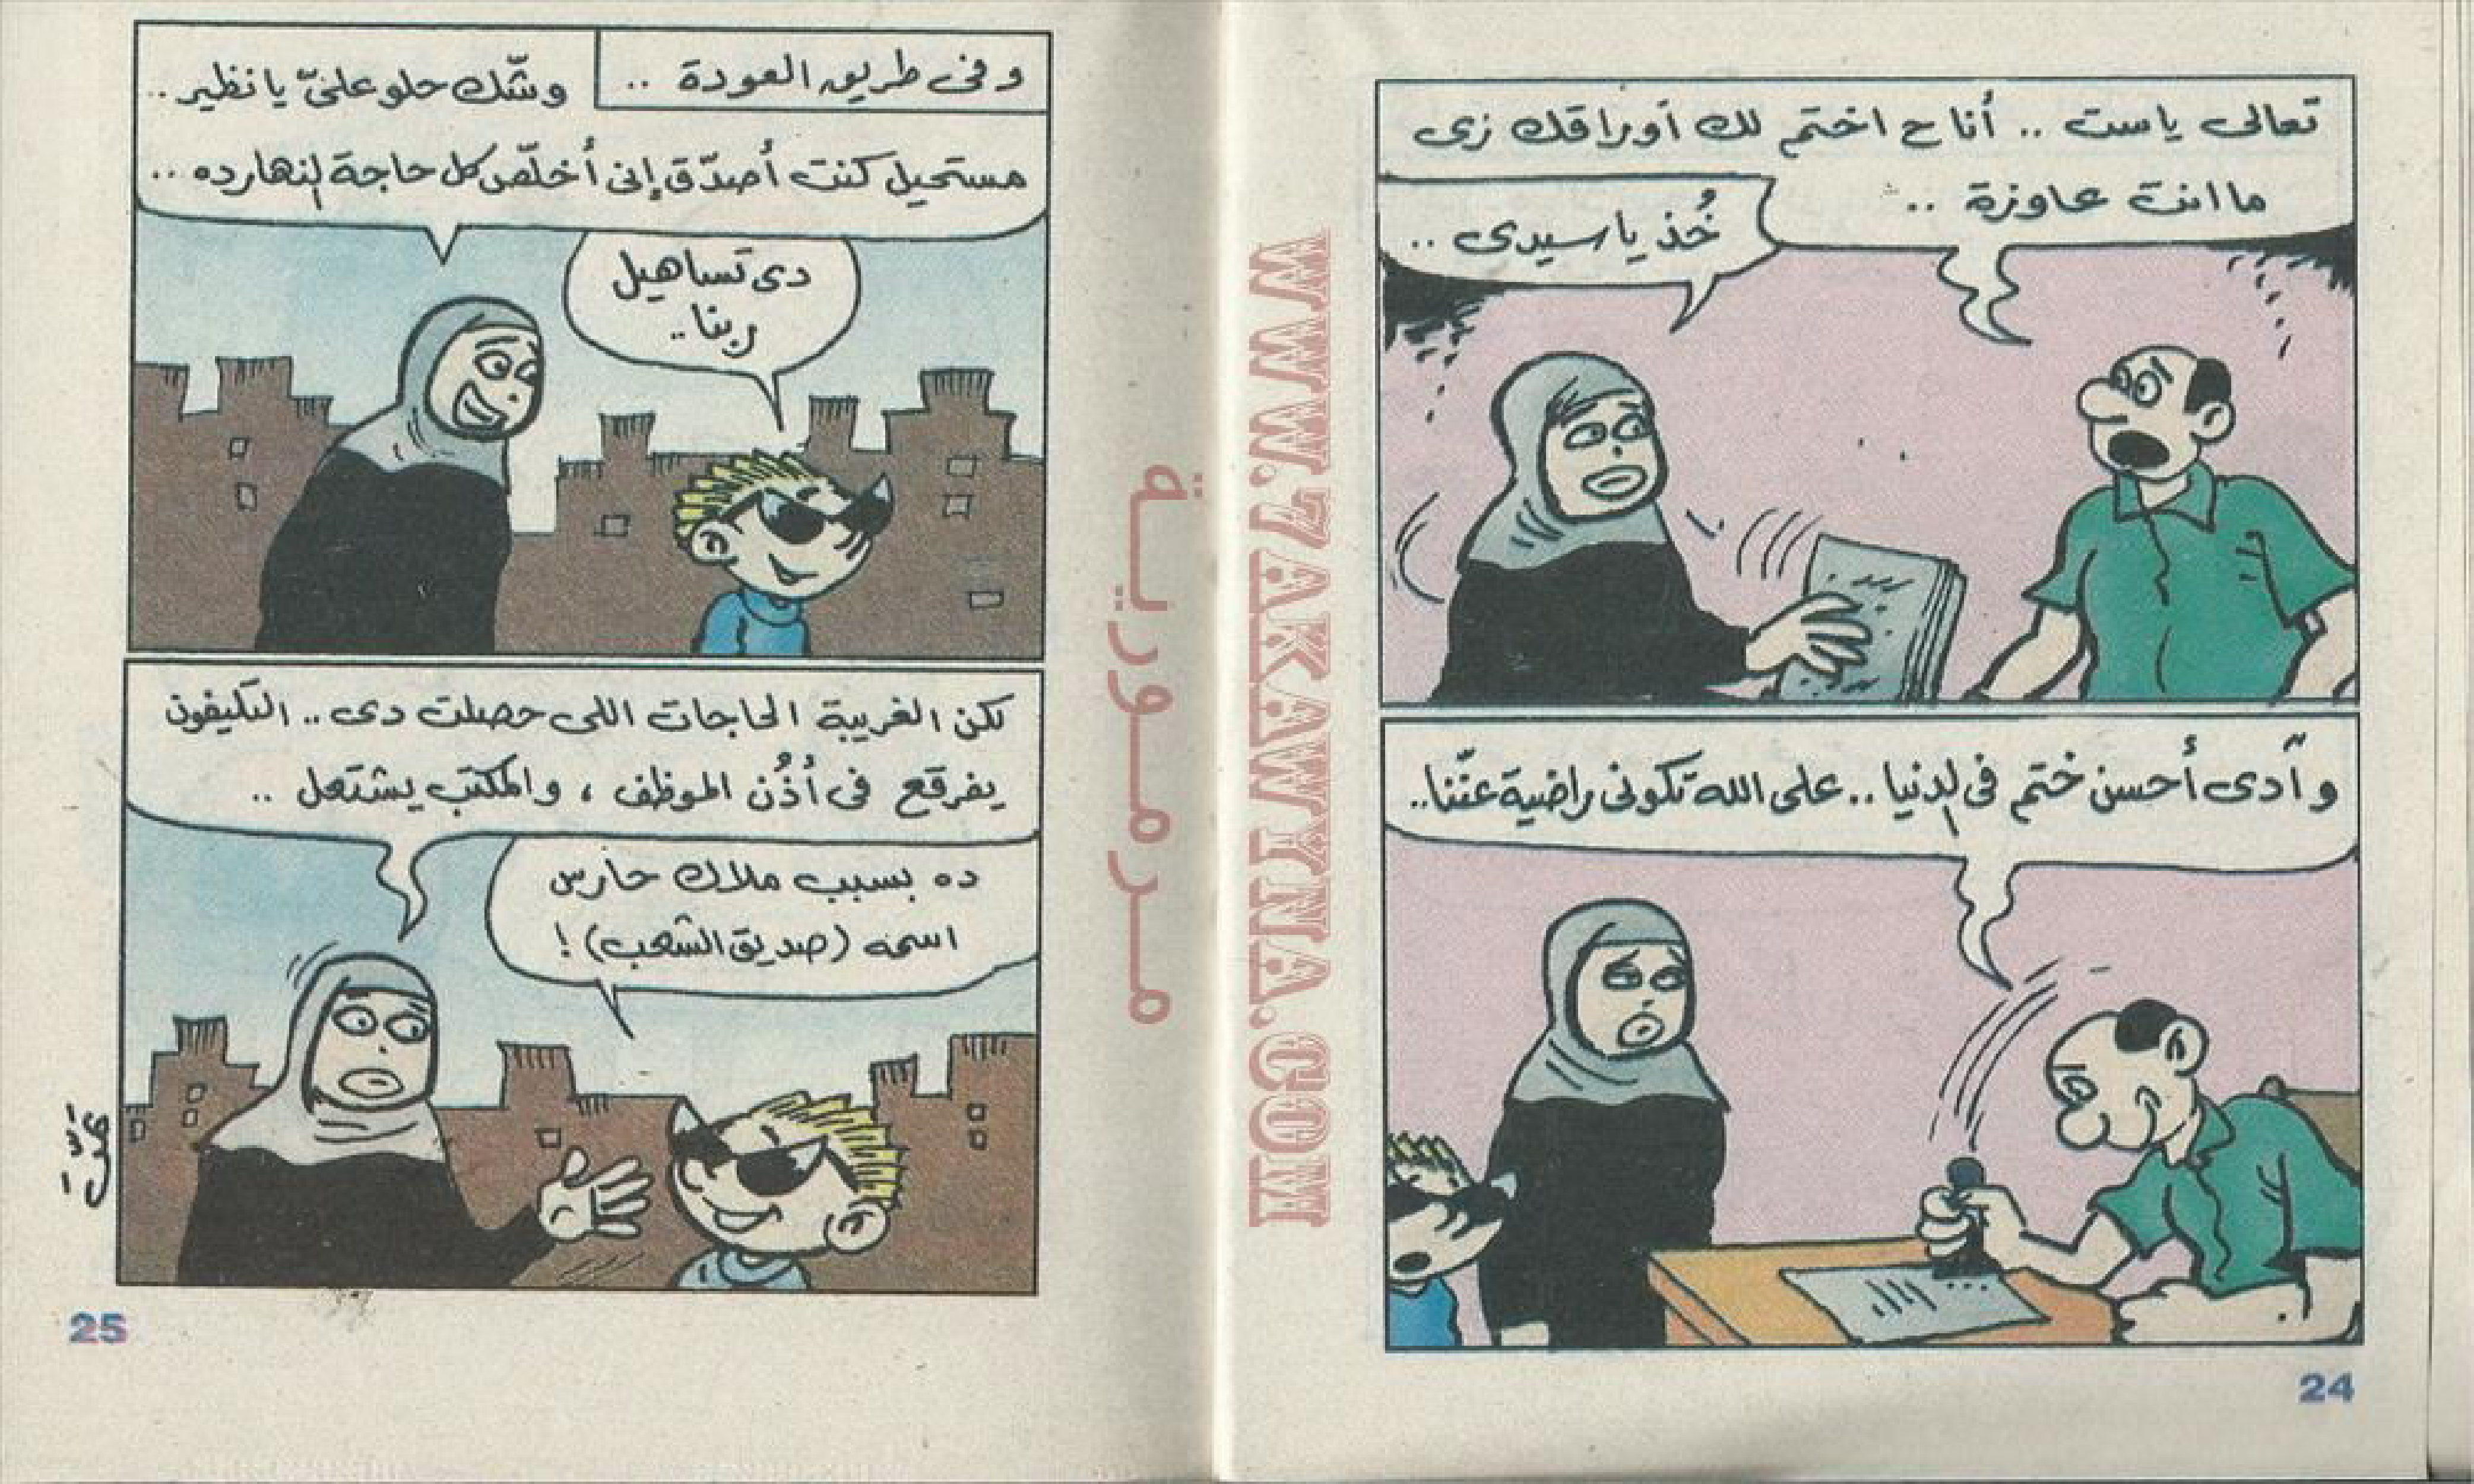 تعالى ياست .. أنا ح اختم لك أوراقك زى
ما انت عاوزة ..
خُذ يا سيدى ..
وآدى أحسن ختم فى الدنيا .. على الله تكونى راضية عنّنا ..
24
وفى طريق العودة ..
وشّك حلو علىّ يا نظير ..
مستحيل كنت أصدّق إنى أخلّص كل حاجة النهارده ..
دى تساهيل
ربنا ..
لكن الغريبة الحاجات اللى حصلت دى .. التليفون
يفرقع فى أُذُن الموظف ، والمكتب يشتعل ..
ده بسبب ملاك حارس
اسمه (صديق الشعب) !
25
مرمورية
WWW.7AKAWYINA.COM